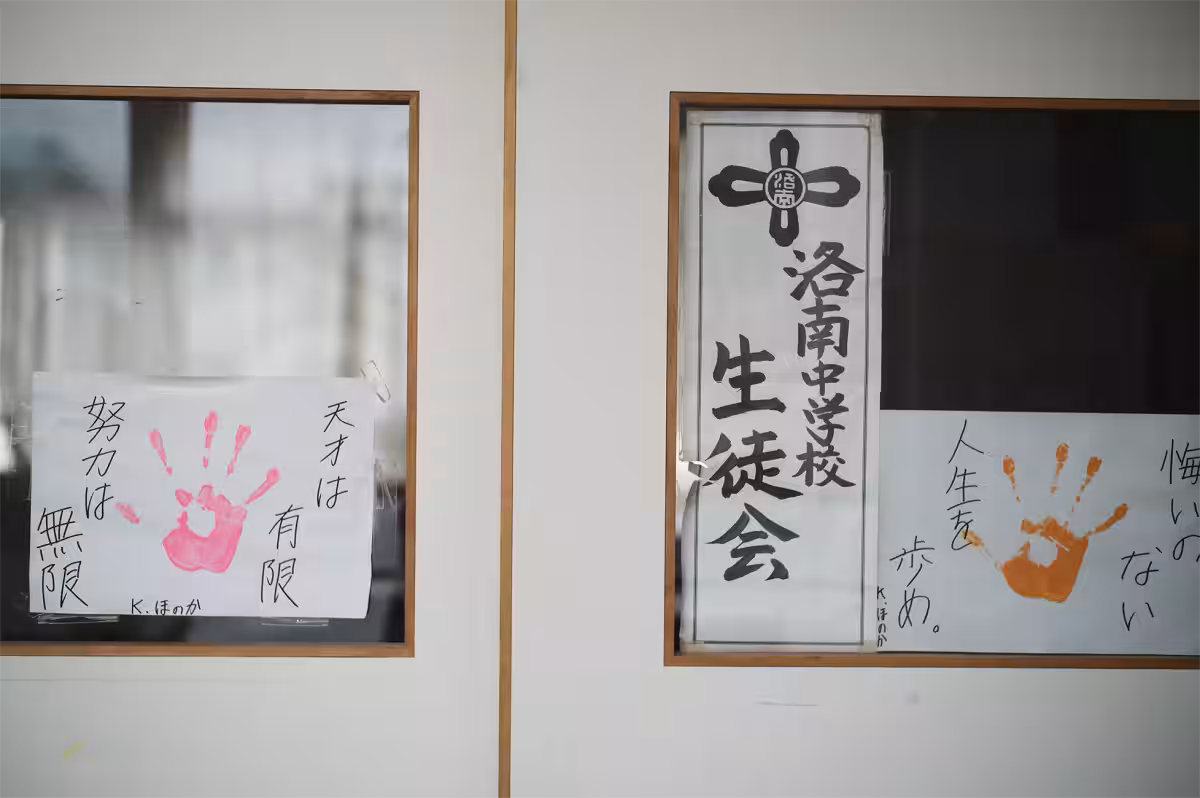 天才は
有限
努力は
無限
K.ほのか
洛南
洛南中学校
生徒会
悔いの
ない
人生を
歩め。
K.ほのか